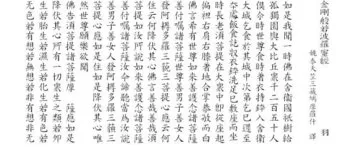 金剛般若波羅蜜經 羽
姚秦天竺三藏鳩摩羅什 譯
如是我聞一時佛在舍衛國祇樹給
孤獨園與大比丘衆千二百五十人
俱爾時世尊食時著衣持鉢入舍衛
大城乞食於其城中次第乞已還至
本處飯食訖收衣鉢洗足已敷座而坐
時長老須菩提在大衆中即從座起
偏袒右肩右膝著地合掌恭敬而白
佛言希有世尊如來善護念諸菩薩
善付囑諸菩薩世尊善男子善女人
發阿耨多羅三藐三菩提心應云何
住云何降伏其心佛言善哉善哉須
菩提如汝所說如來善護念諸菩薩
善付囑諸菩薩汝今諦聽當爲汝說
善男子善女人發阿耨多羅三藐三
菩提心應如是住如是降伏其心唯
然世尊願樂欲聞
佛告須菩提諸菩薩摩訶薩應如是
降伏其心所有一切衆生之類若卵
生若胎生若濕生若化生若有色若
無色若有想若無想若非有想非無